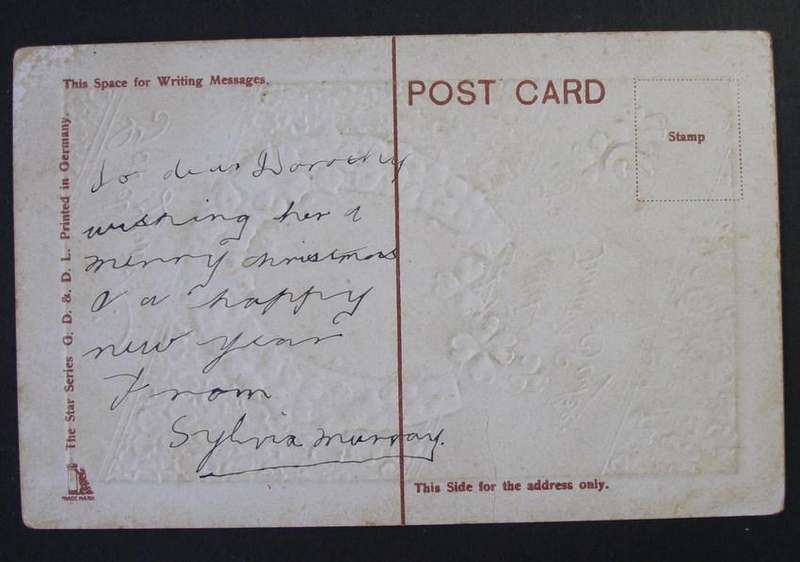 This Space for Writing Messages.
POST CARD
Stamp
The Star Series G. D. & D. L. Printed in Germany.
To dear Dorothy
wishing her a
merry christmas
& a happy
new year
From
Sylvia Murray.
This Side for the address only.
TRADE MARK